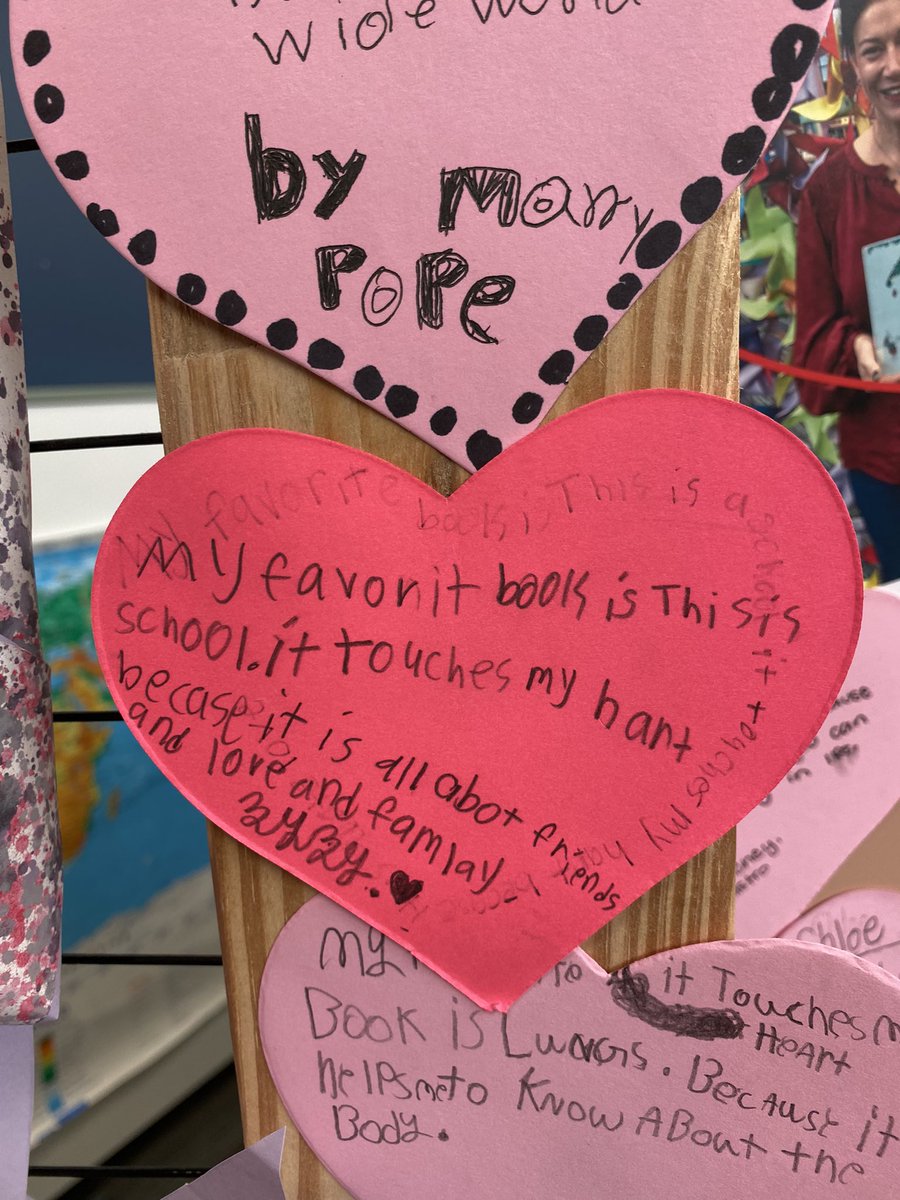 wide world
by Mary
Pope
My favorite book is This is a school it touches my
My favorit book is This is
school. it touches my hart
becase it is all abot friends
and love and famlay
zyzy.
My
to it Touches m
Heart
Book is Lungs. Because it
HelPs me to Know ABout the
Body.
can
in
ney.
Chloe